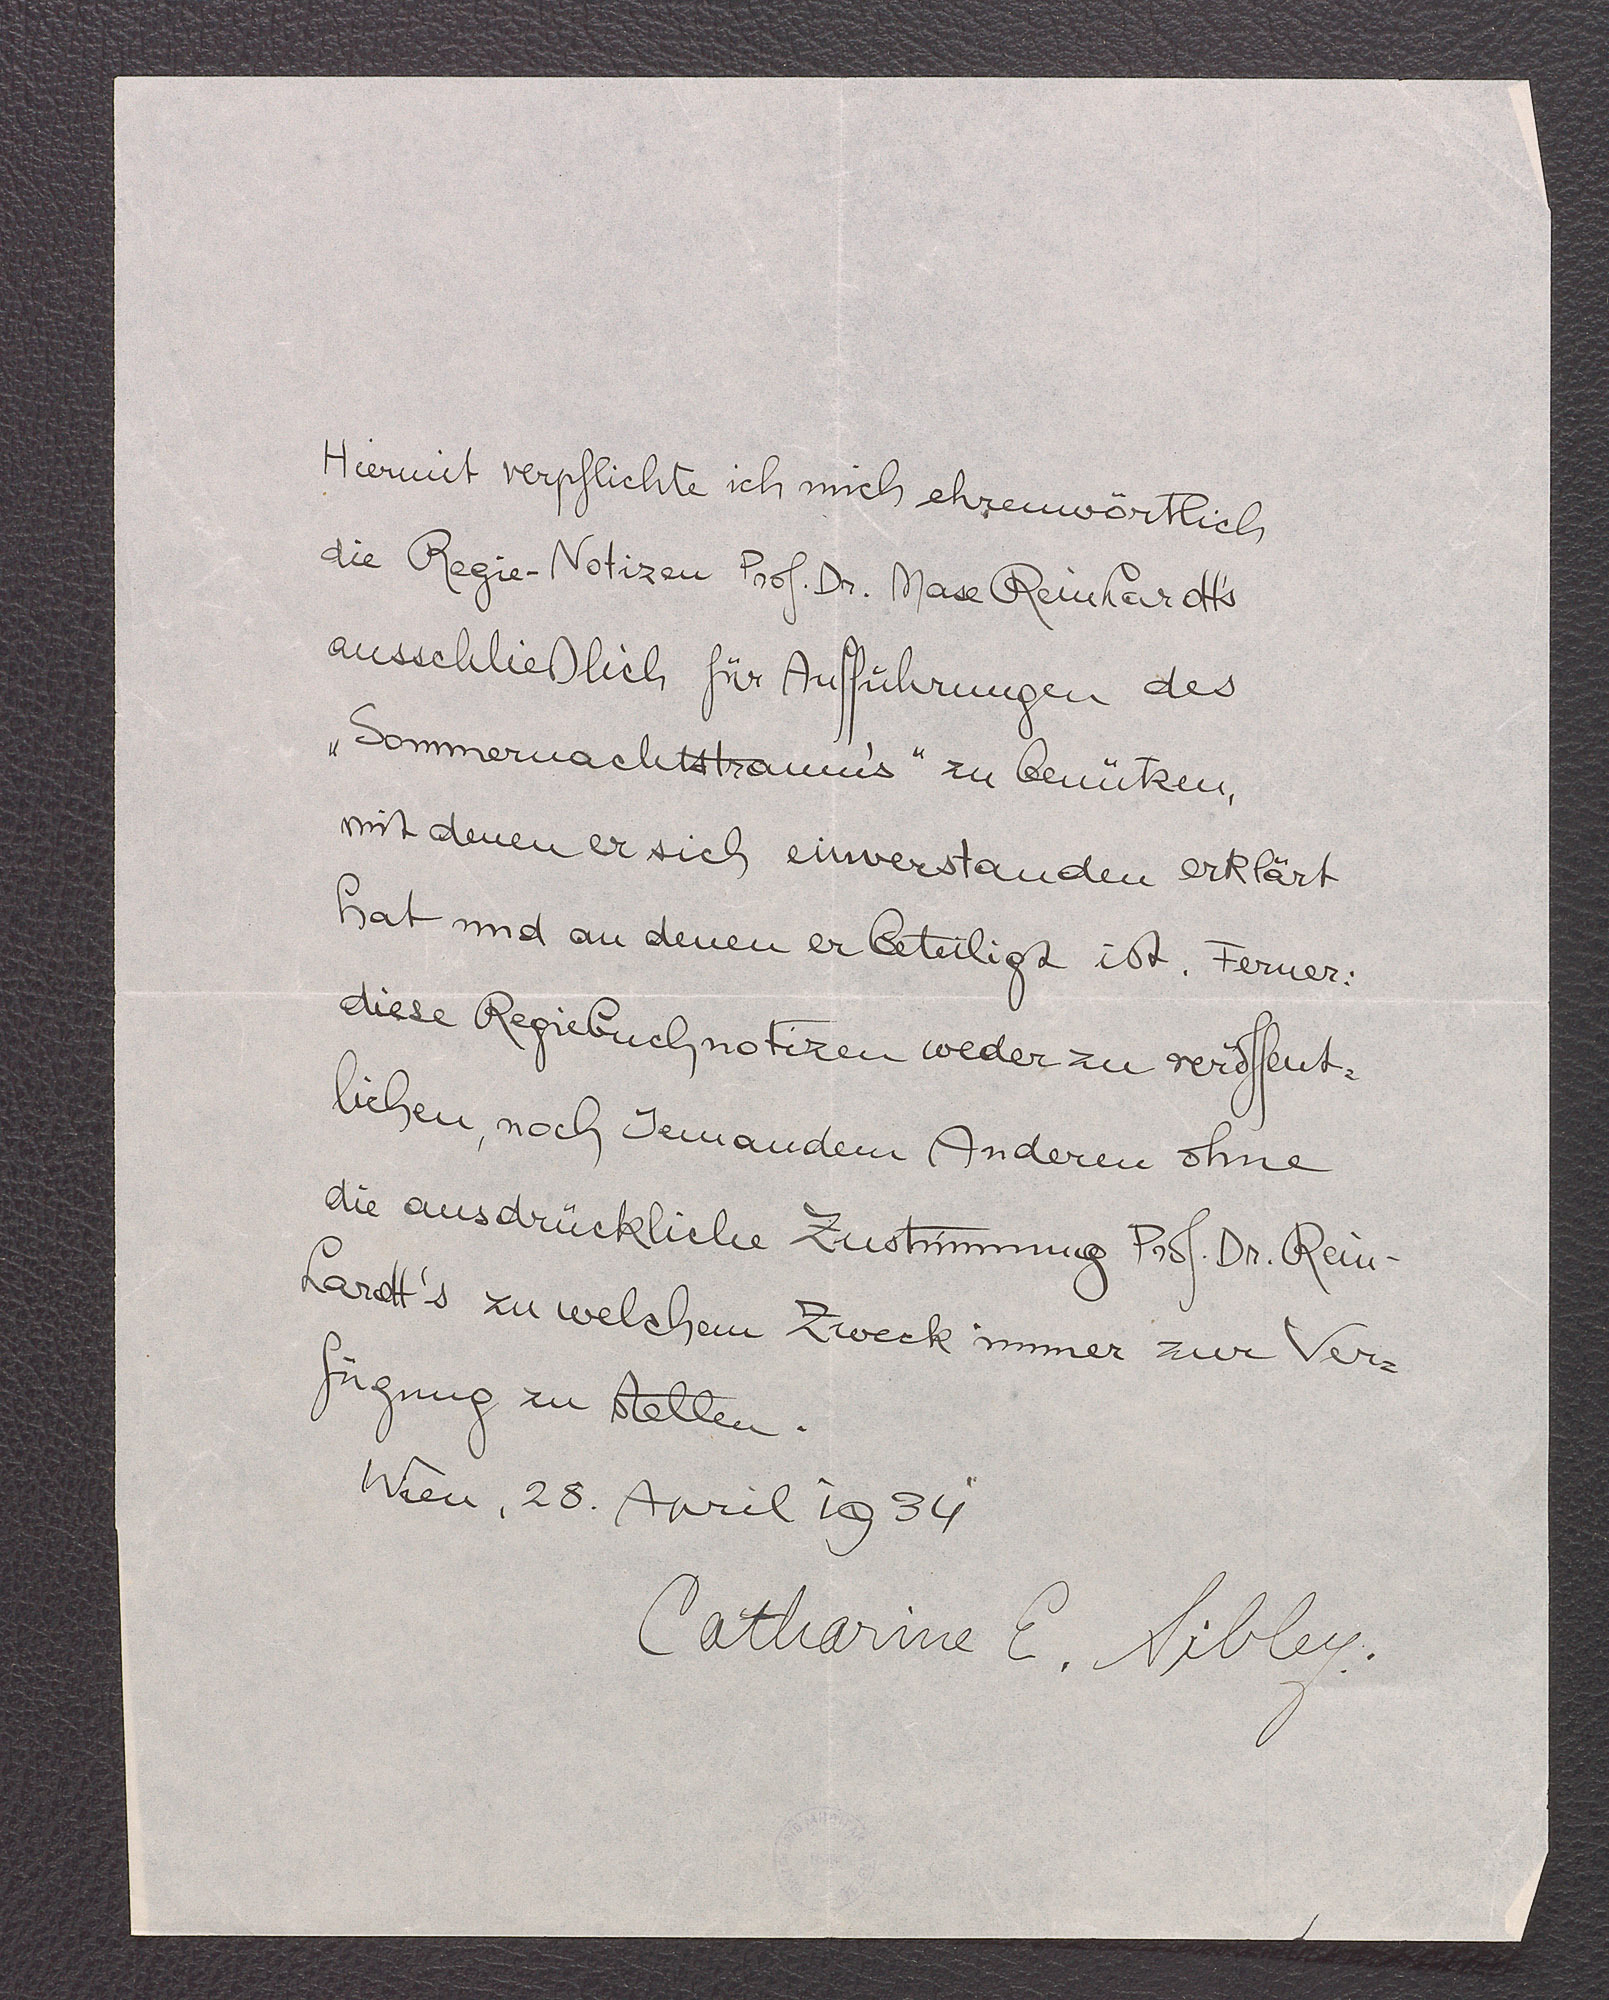 Hiermit verpflichte ich mich ehrenwörtlich
die Regie-Notizen Prof. Dr. Max Reinhardt's
ausschließlich für Aufführungen des
„Sommernachtstraum's“ zu benützen,
mit denen er sich einverstanden erklärt
hat und an denen er beteiligt ist. Ferner:
diese Regiebuchnotizen weder zu veröffent=
lichen, noch Jemandem Anderen ohne
die ausdrückliche Zustimmung Prof. Dr. Rein-
hardt's zu welchem Zweck immer zur Ver=
fügung zu stellen.
Wien, 28. April 1934
Catharine E. Sibley.